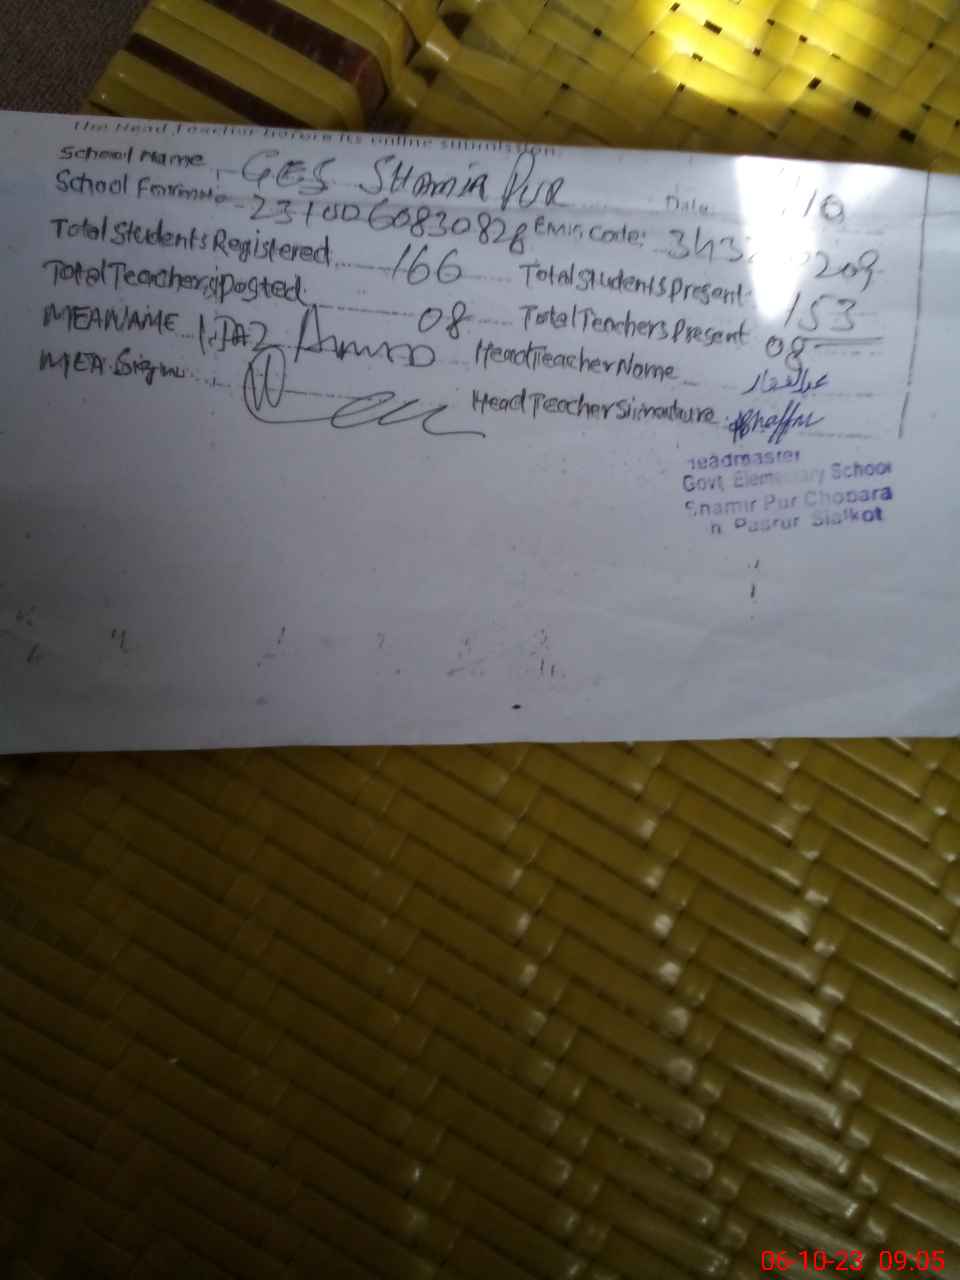 the Head Teacher before its online submission.
School Name GES SHAMIR PUR Date /10
School 2310060830828 Emis Code: 343 209
Total Students Registered 166 Total Students Present 153
Total Teachers Posted 08 Total Teachers Present 08
MEA NAME Ahmad Head Teacher Name عبدالغفار
MEA Head Teacher Signature Ghaffar
Headmaster
Govt. Elementary School
Shamir Pur Chobara
Pasrur Sialkot
06-10-23 09:05